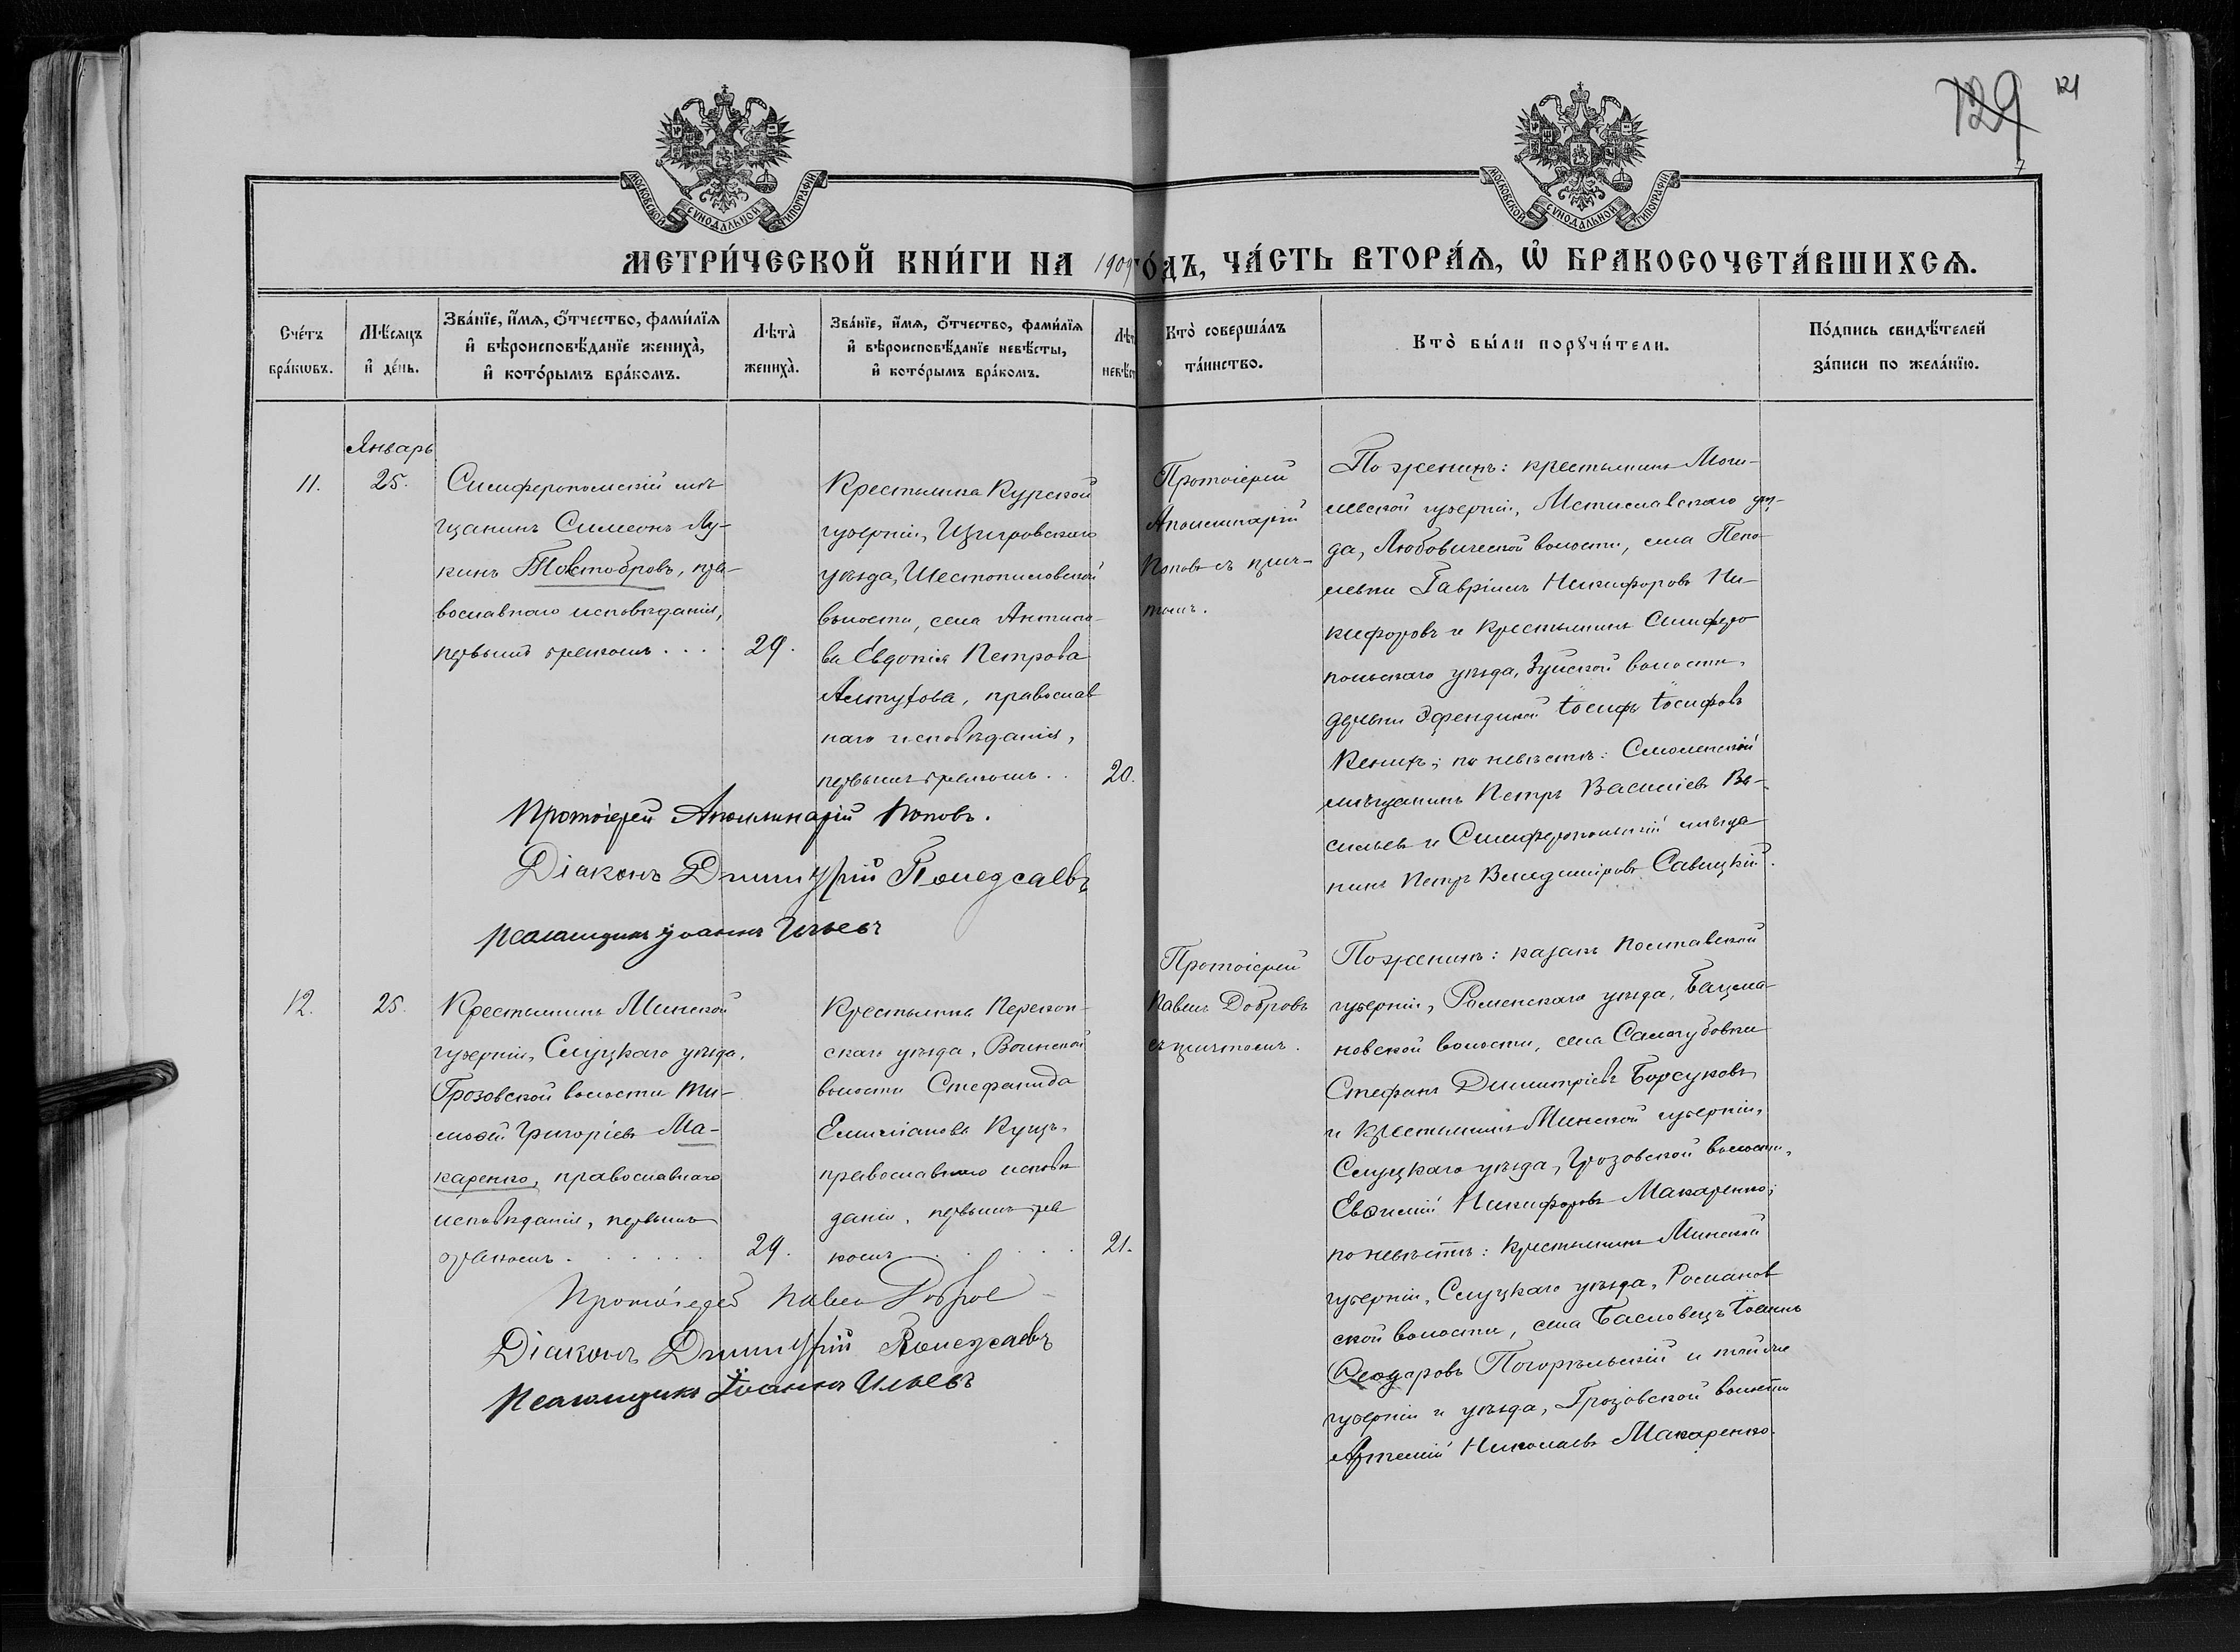 129 121
7
МОСКОВСКОЙ СѴНОДАЛЬНОЙ ТИПОГРАФІИ
МОСКОВСКОЙ СѴНОДАЛЬНОЙ ТИПОГРАФІИ
МЕТРИ́ЧЕСКОЙ КНИ́ГИ НА 1909 ГО́ДЪ, ЧА́СТЬ ВТОРА́Ѧ, Ѽ БРАКОСОЧЕТА́ВШИХСѦ.
Сче́тъ
бра́кѡвъ.
Мѣ́сяцъ
и҆ де́нь.
Зва́нїе, и҆́мѧ, ѻ҆́тчество, фами́лїѧ
и҆ вѣроисповѣ́данїе жениха̀,
и҆ кото́рымъ бра́комъ.
Лѣта̀
жениха̀.
Зва́нїе, и҆́мѧ, ѻ҆́тчество, фами́лїѧ
и҆ вѣроисповѣ́данїе невѣ́сты,
и҆ кото́рымъ бра́комъ.
Лѣт
невѣ́ст
Кто̀ соверша́лъ
та́инство.
Кто̀ бы́ли порꙋчи́тели.
По́дпись свидѣ́телей
за́писи по жела́нїю.
Январь
11.
25.
Симферопольскій мѣ-
щанинъ Симеонъ Лу-
кинъ Товстобровъ, пра-
вославнаго исповѣданія,
первымъ бракомъ . . . .
29.
Крестьянка Курской
губерніи, Щигровскаго
уѣзда,
волости, села
ва Евдокія Петрова
Алтухова, православ
наго исповѣданія,
первымъ бракомъ . .
20.
Протоіерей
Аполлинарій
Поповъ съ прич-
томъ.
По женихѣ: крестьянинъ Моги-
левской губерніи, Мстиславскаго уѣз-
да, Любовической волости, села
Гавріилъ Никифоровъ Ни-
кифоровъ и крестьянинъ Симферо
польскаго уѣзда, Зуйской волости,
деревни Эфендикой Іосифъ Іосифовъ
по невѣстѣ: Смоленскій
мѣщанинъ Петръ Василіевъ Ва-
сильевъ и Симферопольскій мѣща
нинъ Петръ Владиміровъ Савицкій.
Протоіерей Аполлинарій Поповъ.
Діаконъ Димитрій
Псаломщикъ Іоаннъ Ильевъ
12.
25.
Крестьянинъ Минской
губерніи, Слуцкаго уѣзда,
Грозовской волости Ти-
моѳей Григоріевъ Ма-
каренко, православнаго
исповѣданія, первымъ
бракомъ . . . . . .
29.
Крестьянка Перекоп-
скаго уѣзда, Воинской
волости Стефанида
Емиліанова Куцъ,
православнаго исповѣ
данія, первымъ бра
комъ . . . . .
21.
Протоіерей
Павелъ Добровъ
съ причтомъ.
По женихѣ: казакъ Полтавской
губерніи, Роменскаго уѣзда, Бацма-
новской волости, села Салогубовки
Стефанъ Димитріевъ Борсуковъ
и крестьянинъ Минской губерніи,
Слуцкаго уѣзда, Грозовской волости,
Евѳимій Никифоровъ Макаренко;
по невѣстѣ: крестьянинъ Минской
губерніи, Слуцкаго уѣзда, Романов
ской волости, села Басловецъ Іоаннъ
Ѳеодоровъ Погорѣльскій и той же
губерніи и уѣзда, Грозовской волости
Артемій Николаевъ Макаренко.
Протоіерей Павелъ Добров
Діаконъ Димитрій
Псаломщикъ Іоаннъ Ильевъ